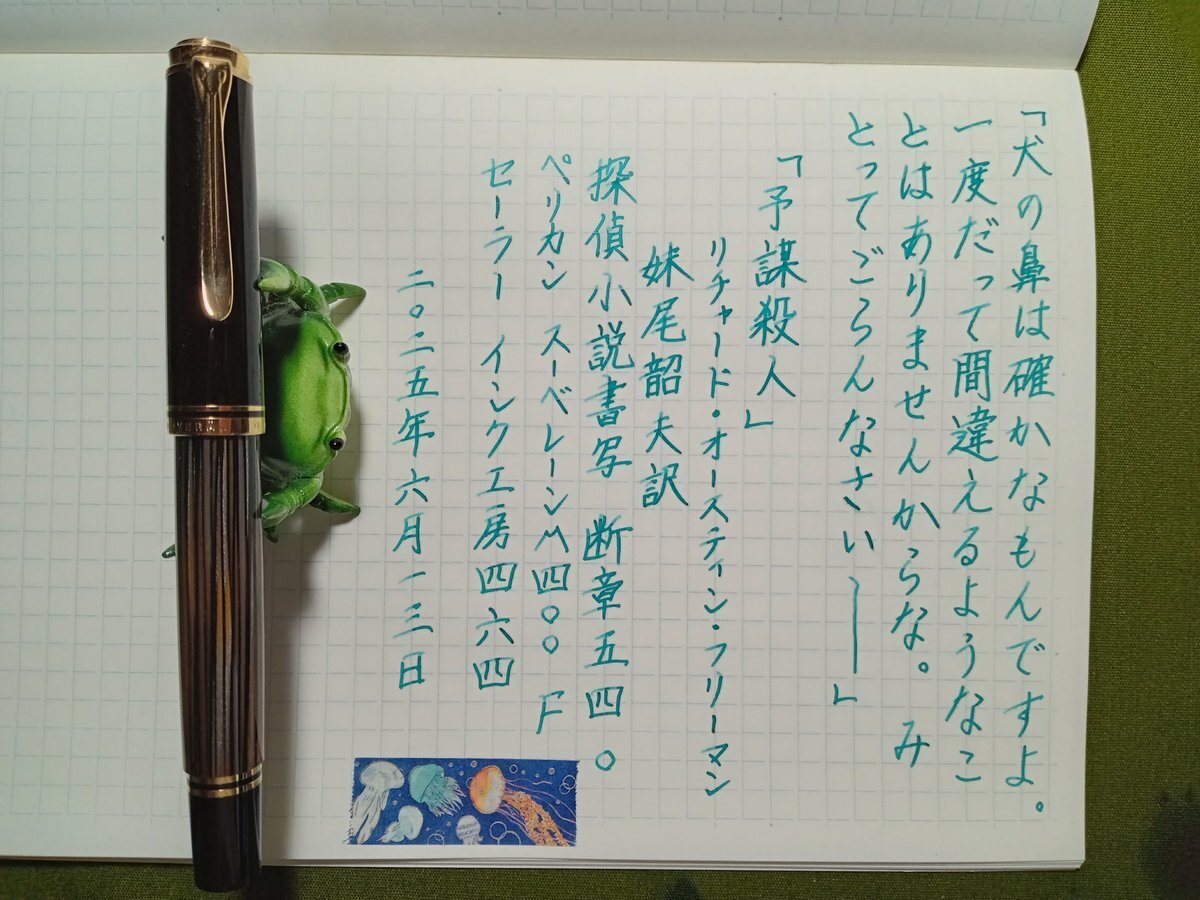 「犬の鼻は確かなもんですよ。
一度だって間違えるようなこ
とはありませんからな。　み
とってごらんなさい――」
「予謀殺人」
リチャード・オースティン・フリーマン
妹尾韶夫訳
探偵小説書写　断章五四〇
ペリカン　スーベレーンM四〇〇　F
セーラー　インク工房四六四
二〇二五年六月一三日